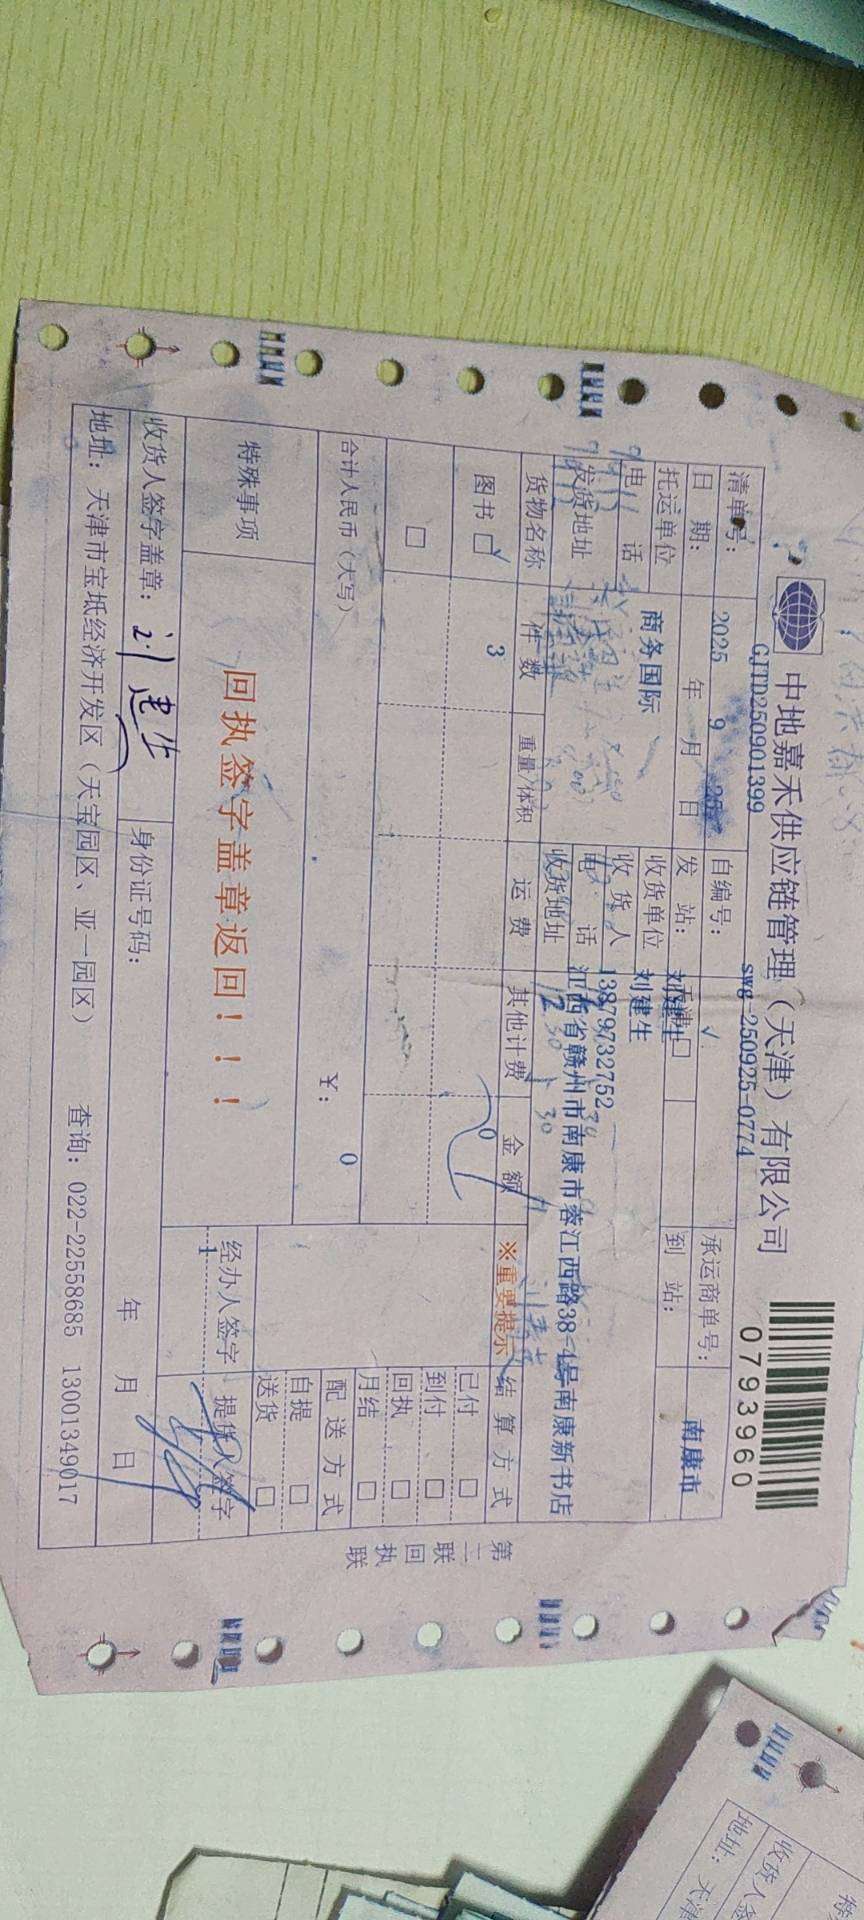 中地嘉禾供应链管理（天津）有限公司
0793960
清单号： GJTD250901399 自编号： swg-250925-0774 承运商单号：
日期： 2025 年 9 月 日 发站： 到站： 南康市
托运单位 商务国际 收货单位 刘建生
电话 收货人 刘建生
电话 13879732752
发货地址 收货地址 江西省赣州市南康市蓉江西路38-1号南康新书店
货物名称 件数 重量/体积 运费 其他计费 金额 ※重要提示 结算方式
图书 ☑ 3 0 已付 □
到付 □
□ 回执 □
月结 □
合计人民币（大写） ￥： 0 配送方式
自提 □
送货 □
特殊事项 回执签字盖章返回！！！ 经办人签字 提货人签字
1
收货人签字盖章： 刘建生 身份证号码： 年 月 日
地址：天津市宝坻经济开发区（天宝园区、亚一园区） 查询：022-22558685 13001349017
第二联 回执联
收货人签
地址：天津